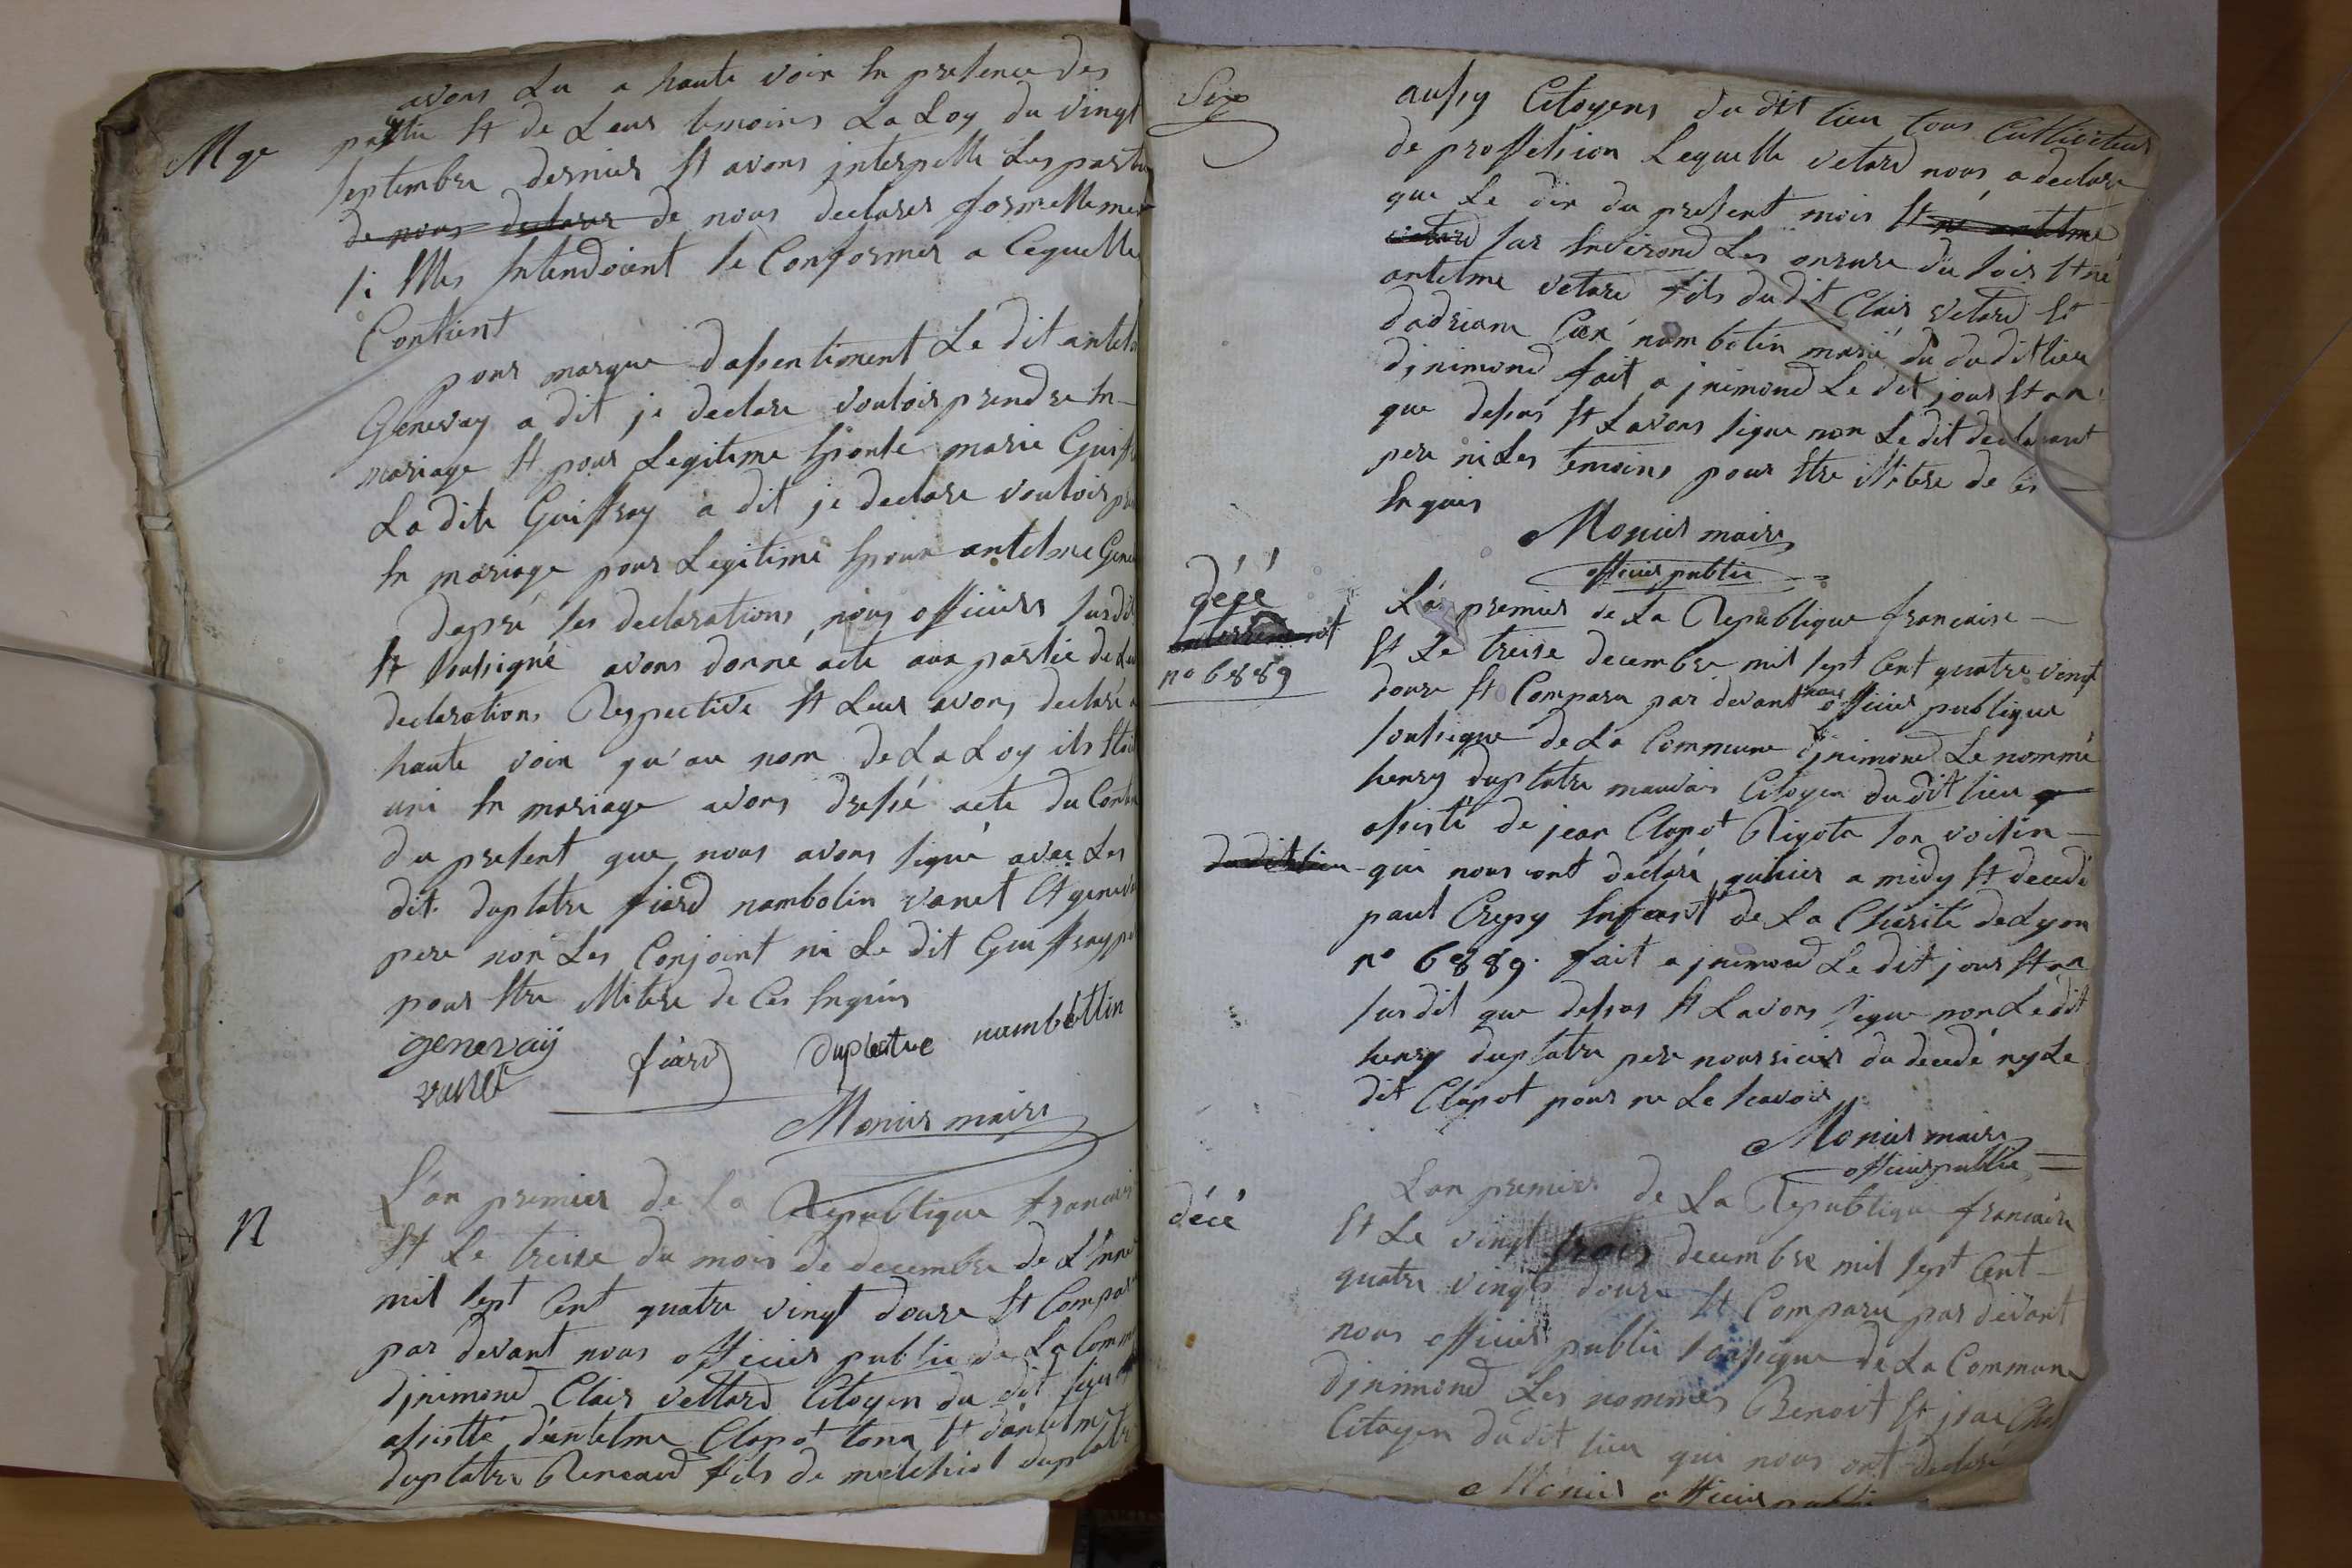 avons Lu a haute voix En presence des
Mge
partie Et de Leur temoins La Loy du vingt
septembre dernier Et avons interpellé Les partie
de nous declarer de nous declarer formellement
si Elles Entendoient se Conformer a Cequelle
Contient
pour marque dassentiment Le dit antel
Genevay a dit je declare vouloir prendre En
mariage Et pour Legitime Epouse marie Guiff
La dite Guiffray a dit je declare vouloir pr
En mariage pour Legitime Epoux antelme Gene
dapré ses declarations nous officier susdit
Et soussigné avons donné acte aux partie de Leu
declarations Respective Et Leur avons declaré a
haute voix qu'au nom de La Loy ils Etoi
uni En mariage avons dressé acte du Conte
du present que nous avons signé avec Les
dit duplatre fiard nambotin vanet Et genev
pere non Les Conjoint ni Le dit Guiffray pe
pour Etre illitere de Ces Enquis
genevaÿ
vanet
fiard
duplatre
nambottin
Monier maire
N
L'an premier de la Republique francais
Et Le treize du mois de decembre de L'Enne
mil sept Cent quatre vingt douze Et Compar
par devant nous officier public de La Comm
djnimond Clair vettard Citoyen du dit lieu
assisté d'antelme Clapot tona Et dantelme
duplatre Renaud fils de melchiol duplatr
Six
aussy Citoyens du dit lieu tous Cultivateur
de profession Lequelle vetard nous a declare
que Le dix du present mois Et né antelme
vetard sur Environd Les onzure du soir Et né
antelme vetard fils dudit Clair vetard Et
dadriane Caré nambotin marié du dudit lieu
djnimond fait a jnimond Le dit jour Et an
que dessus Et Lavons signe non Le dit declarant
pere ni Les temoins pour Etre illitere de Ces
Enquis
Monier maire
officier public
décé
enterrement
no 6889
L'an premier de La Republique francaise
Et Le treize decembre mil sept Cent quatre vingt
douze Et Comparu par devant nous officier publique
soussigne de La Commune djnimond Le nommé
henry duplatre mauvais Citoyen du dit lieu
assisté de jean Clapot Rigota son voisin
dudit lieu qui nous ont declaré quhier a midy Et decedé
paul Crepy Enfant de La Cherité de Lyon
no 6889. fait a jnimond Le dit jour Et an
susdit que dessus Et Lavons signe non Le dit
henry duplatre pere nourricier du decedé ny Le
dit Clapot pour ne Le scavoir
Monier maire
officier public
décé
Lan premier de La Republique francaise
Et Le vingt trois decembre mil sept Cent
quatre vingts douze Et Comparu par devant
nous officier public soussigne de La Commune
djnimond Les nommés Benoit Et jsac
Citoyen dudit lieu qui nous ont declaré
Monier officier public